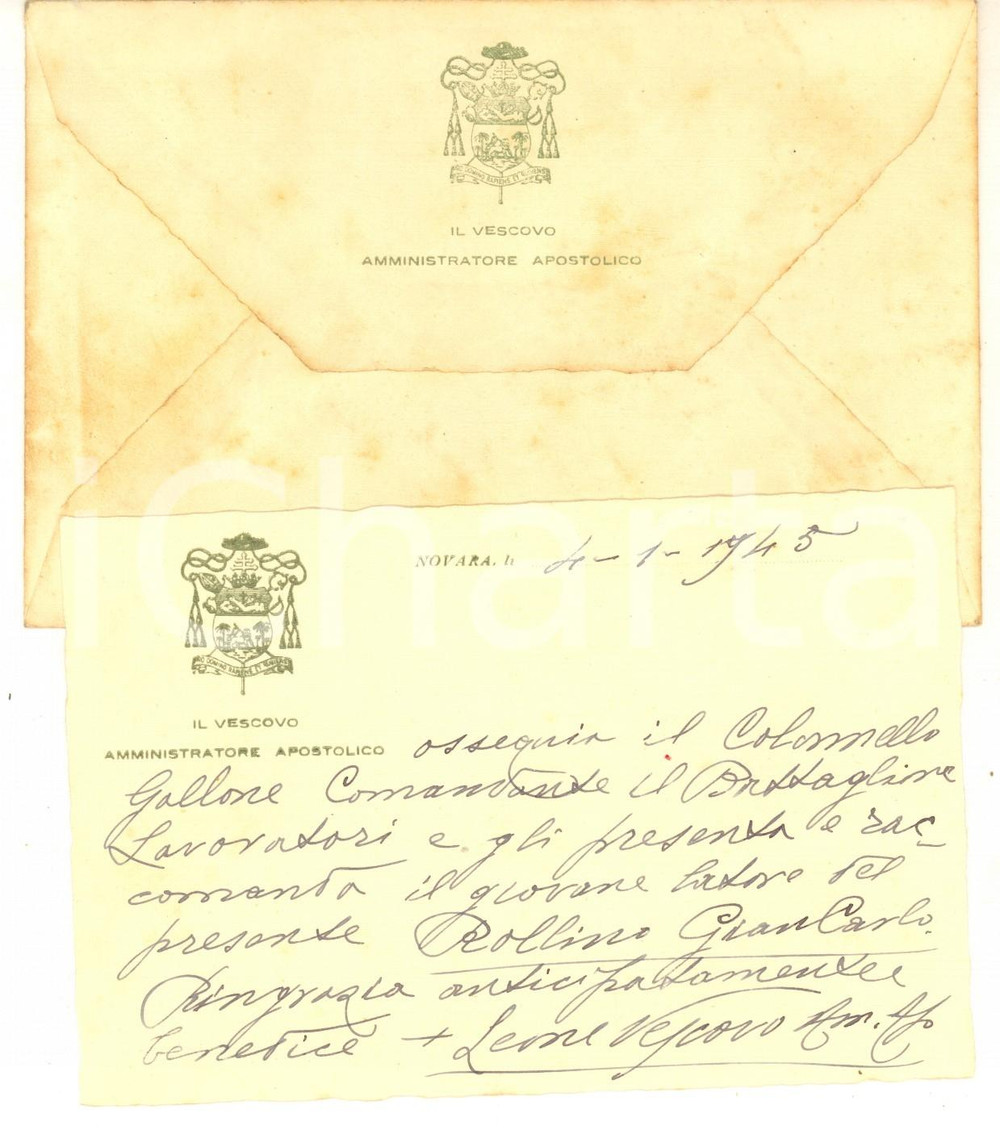 IL VESCOVO
AMMINISTRATORE APOSTOLICO
NOVARA, li 4-1-1945
IL VESCOVO
AMMINISTRATORE APOSTOLICO
ossequia il Colonnello
Gallone Comandante il Battaglione
Lavoratori e gli presenta e rac-
comanda il giovane latore del
presente Rollino GianCarlo.
Ringrazia anticipatamente e
benedice + Leone Vescovo Am. Ap
iCharta